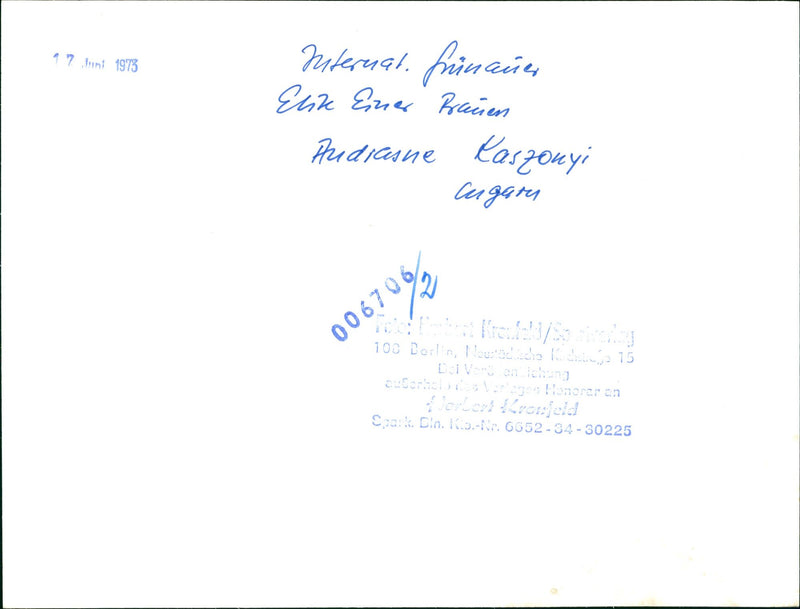 17 Juni 1973
Internat. Grünauer
Elite Einer Frauen
Andrasne Kaszonyi
Ungarn
006706/2
Foto: Herbert Kronfeld/Sportverlag
108 Berlin, Neustädtische Kirchstraße 15
Bei Veröffentlichung
außerhalb des Verlages Honorar an
Herbert Kronfeld
Spark. Bln. Kto.-Nr. 6652-34-30225